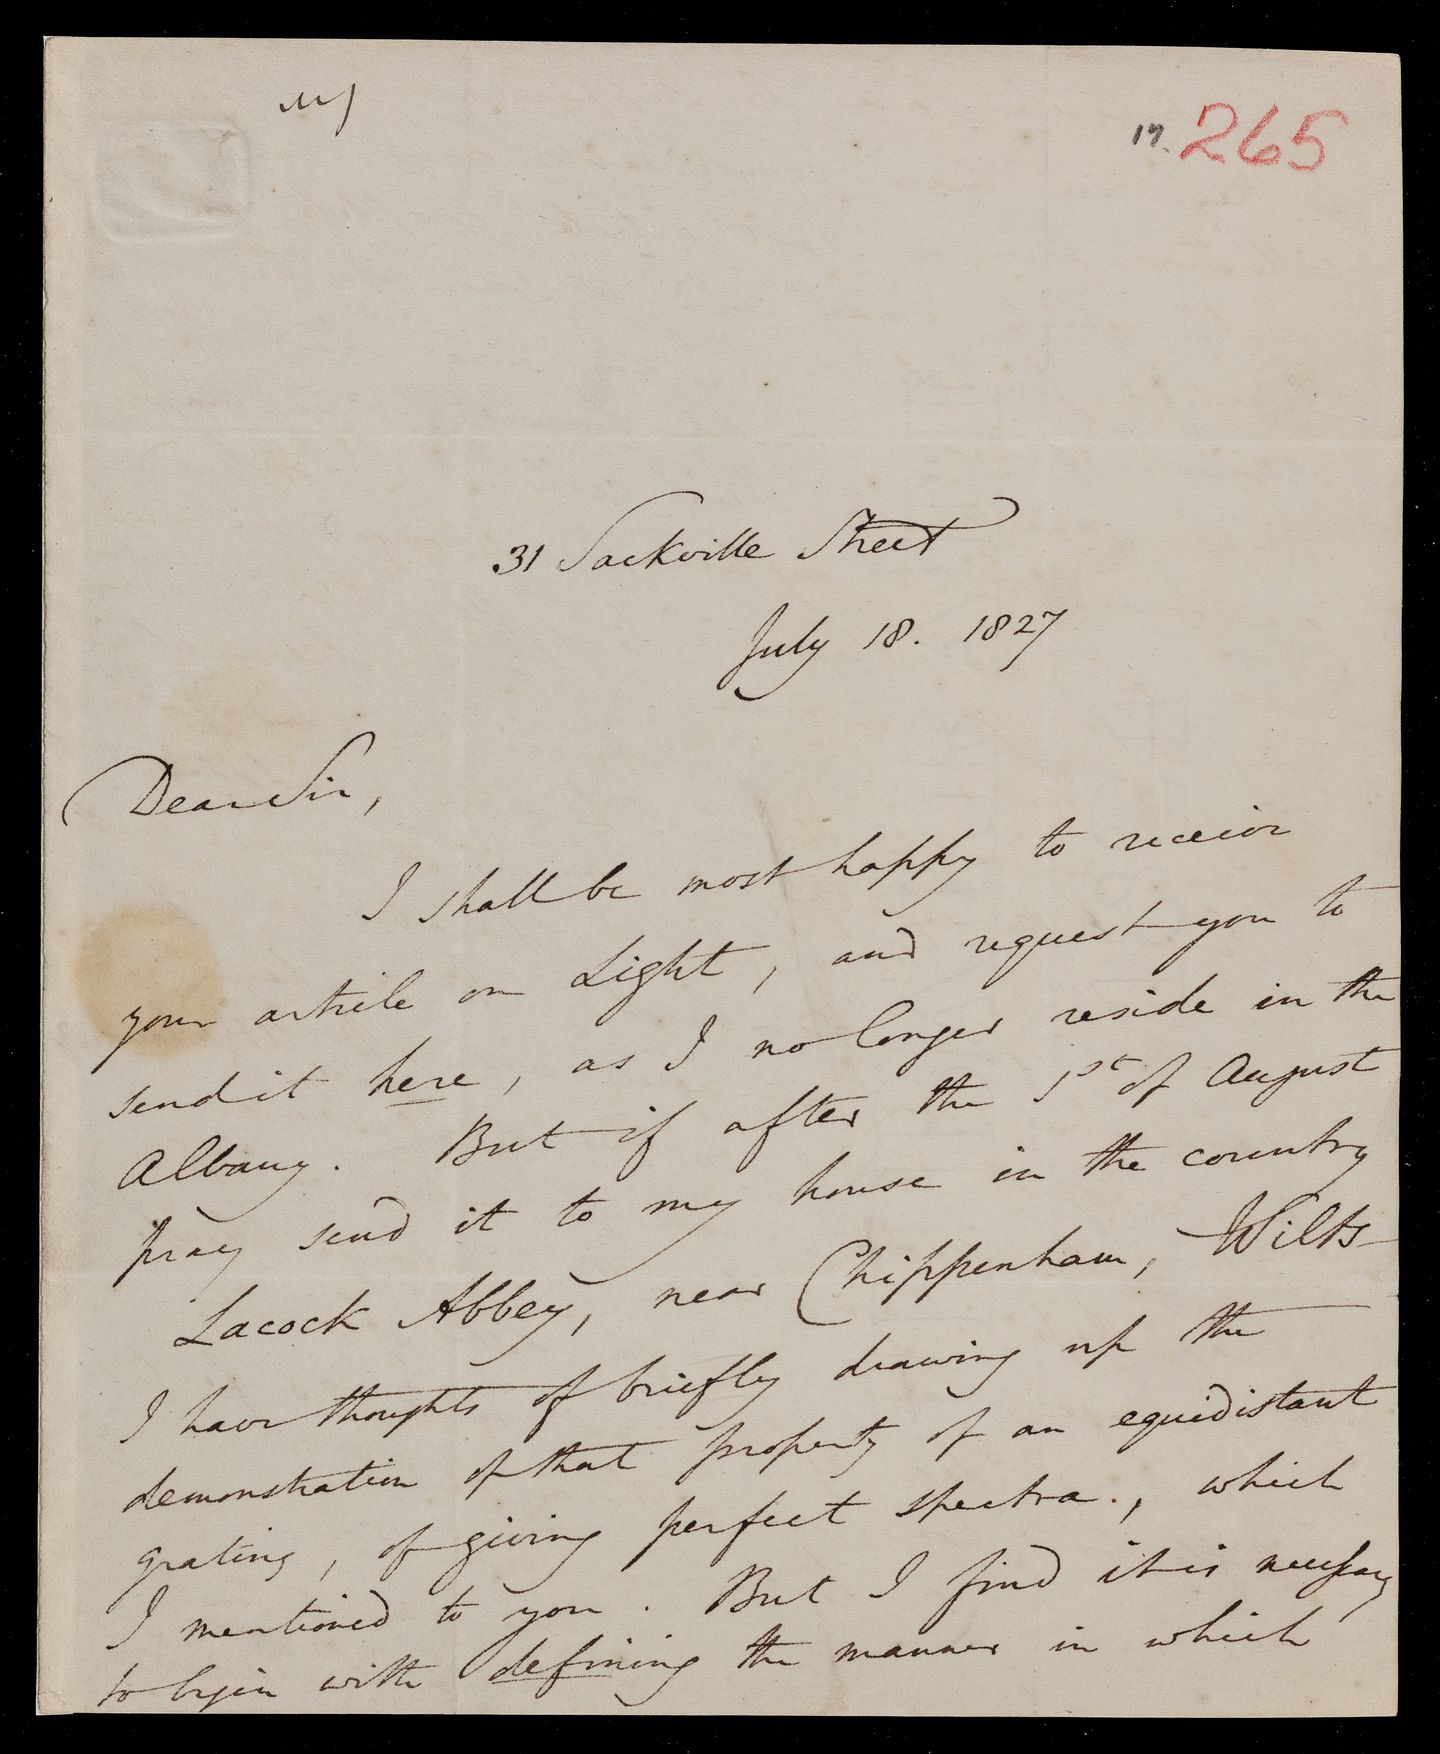 17. 265
31 Sackville Street
July 18. 1827
Dear Sir,
I shall be most happy to receive
your article on Light, and request you to
send it here, as I no longer reside in the
Albany. But if after the 1st of August
pray send it to my house in the country
Lacock Abbey, near Chippenham, Wilts
I have thoughts of briefly drawing up the
demonstration of that property of an equidistant
grating, of giving perfect spectra., which
I mentioned to you. But I find it is necessary
to begin with defining the manner in which